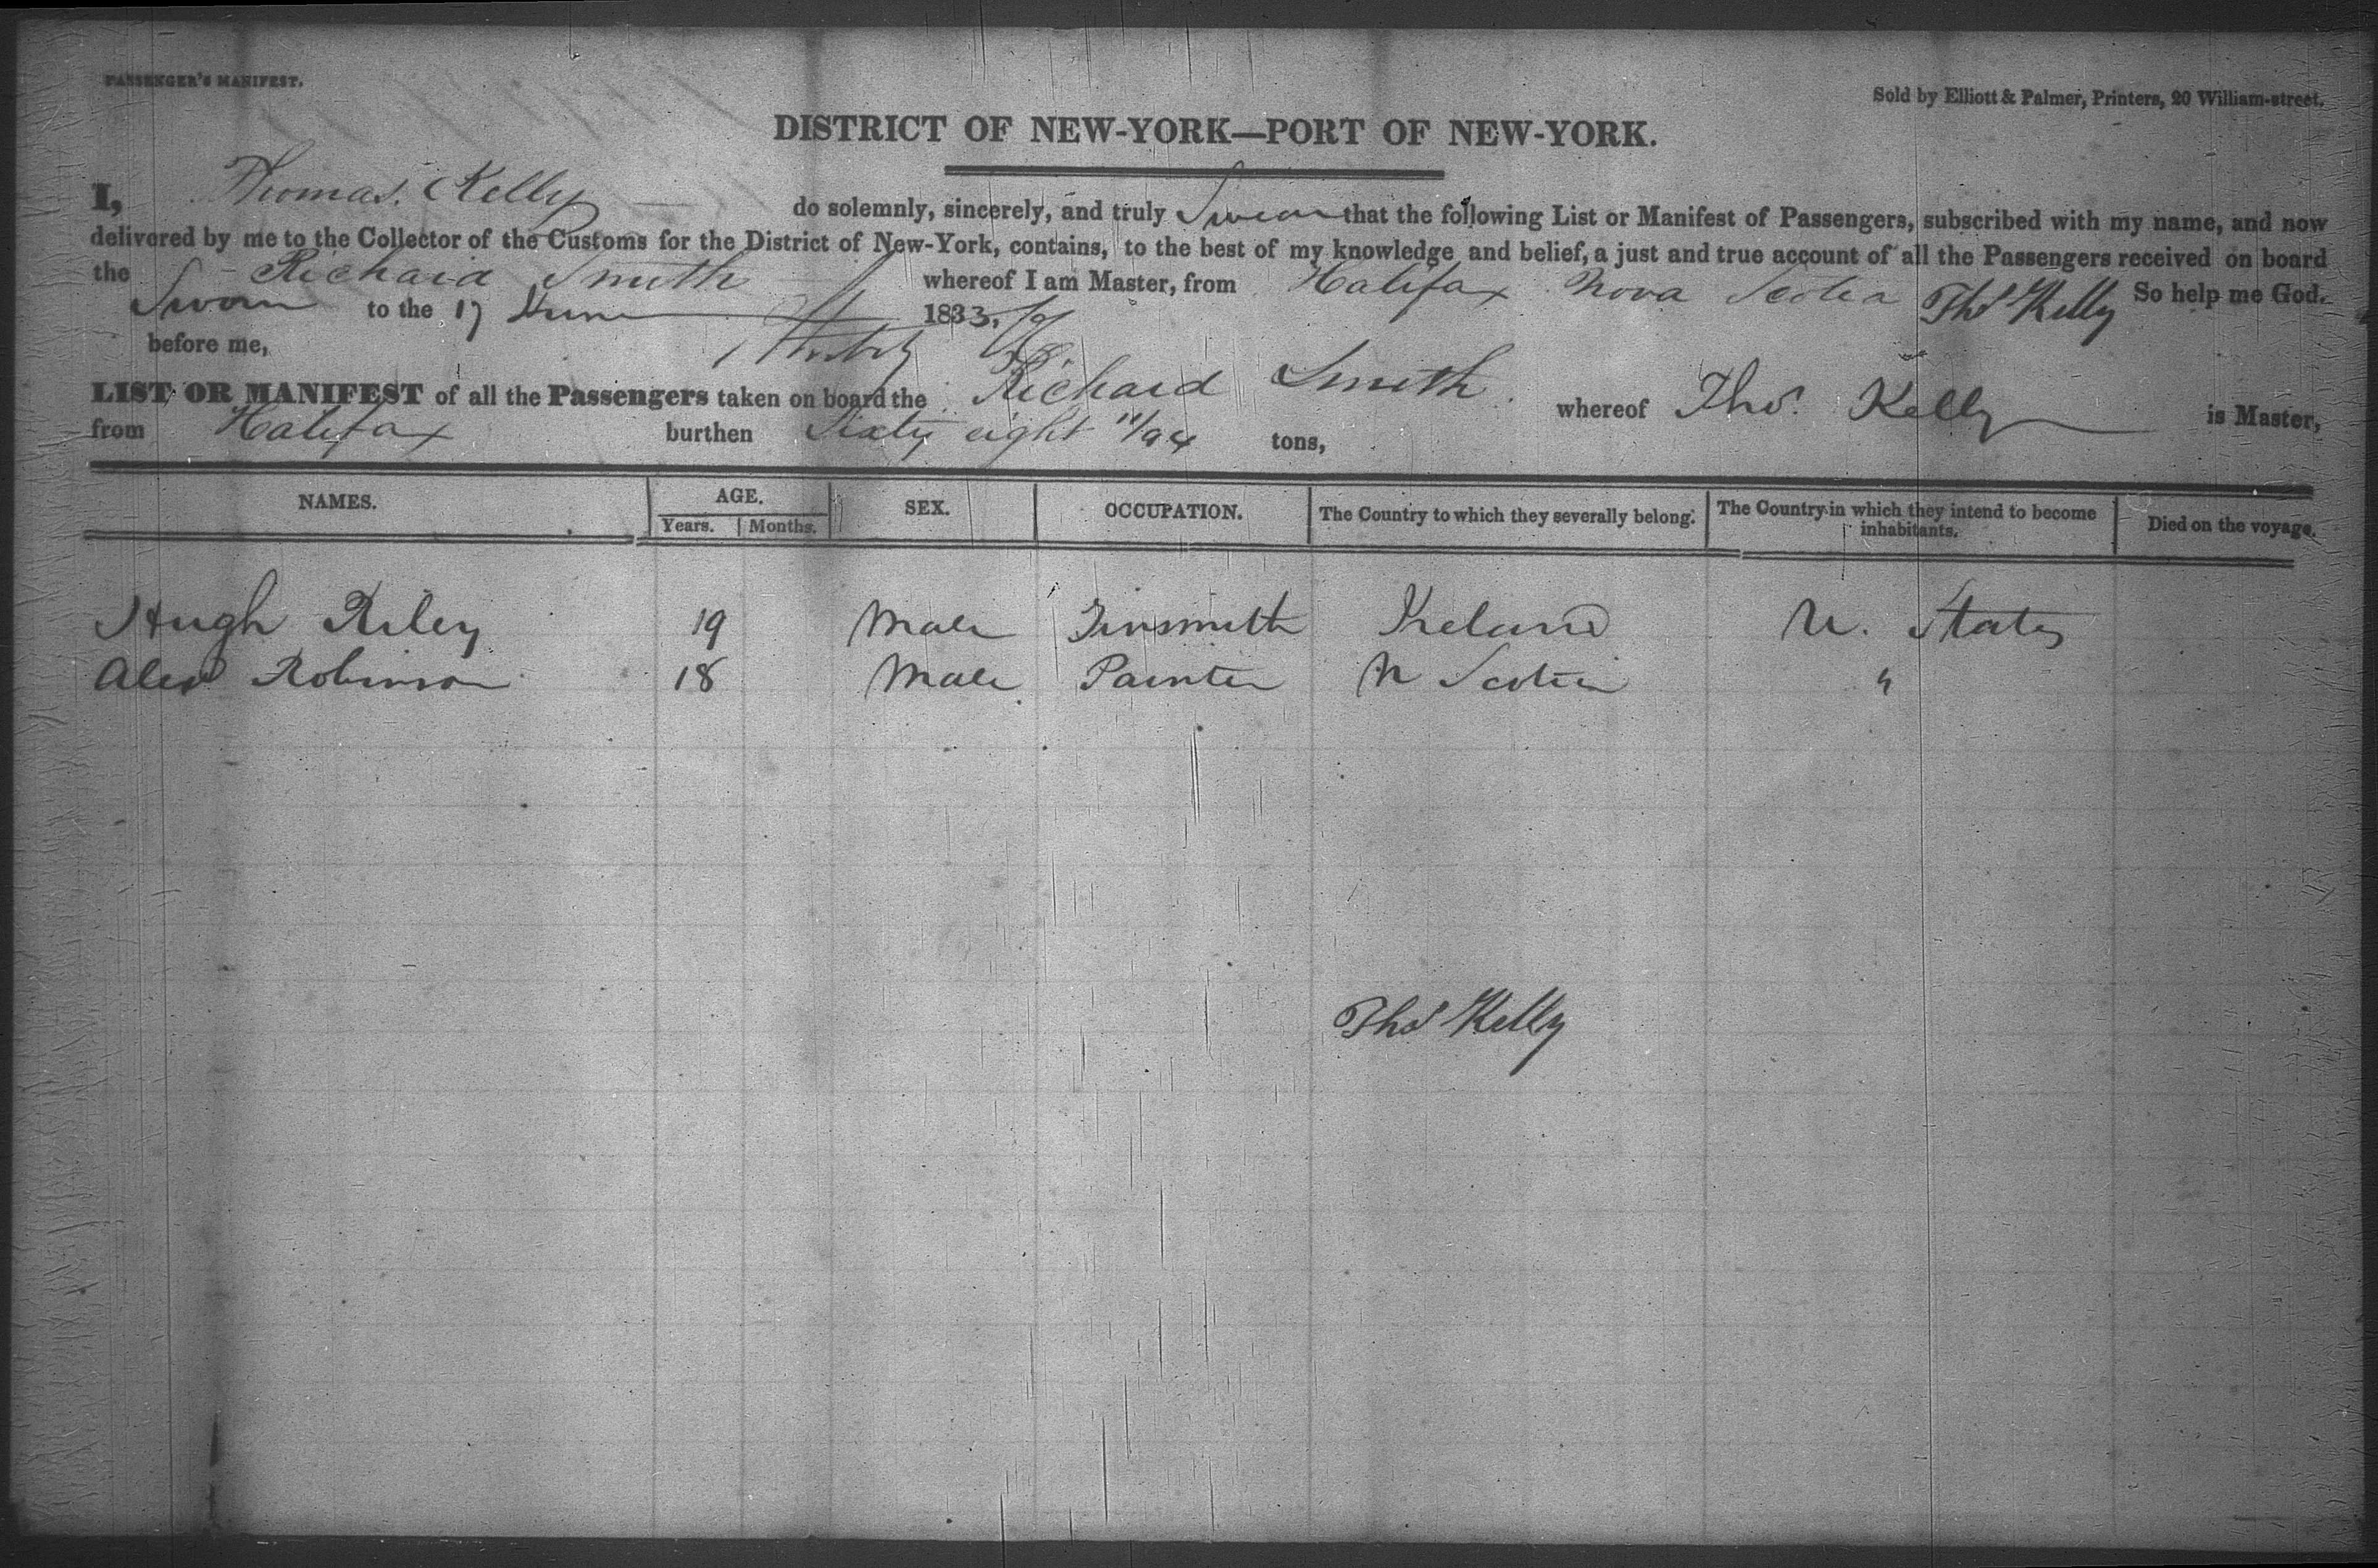 PASSENGER'S MANIFEST.
Sold by Elliott & Palmer, Printers, 20 William-street.
DISTRICT OF NEW-YORK—PORT OF NEW-YORK.
I, Thomas Kelly do solemnly, sincerely, and truly Swear that the following List or Manifest of Passengers, subscribed with my name, and now
delivered by me to the Collector of the Customs for the District of New-York, contains, to the best of my knowledge and belief, a just and true account of all the Passengers received on board
the Richard Smith whereof I am Master, from Halifax Nova Scotia So help me God.
Sworn to the 17 June 1833, Thos Kelly
before me,
LIST OR MANIFEST of all the Passengers taken on board the Richard Smith whereof Thos. Kelly is Master,
from Halifax burthen Sixty eight 11/94 tons,
NAMES. AGE. SEX. OCCUPATION. The Country to which they severally belong. The Country in which they intend to become inhabitants. Died on the voyage.
Years. Months.
Hugh Riley 19 Male Tinsmith Ireland U. States
Alex Robinson 18 Male Painter N Scotia "
Thos Kelly